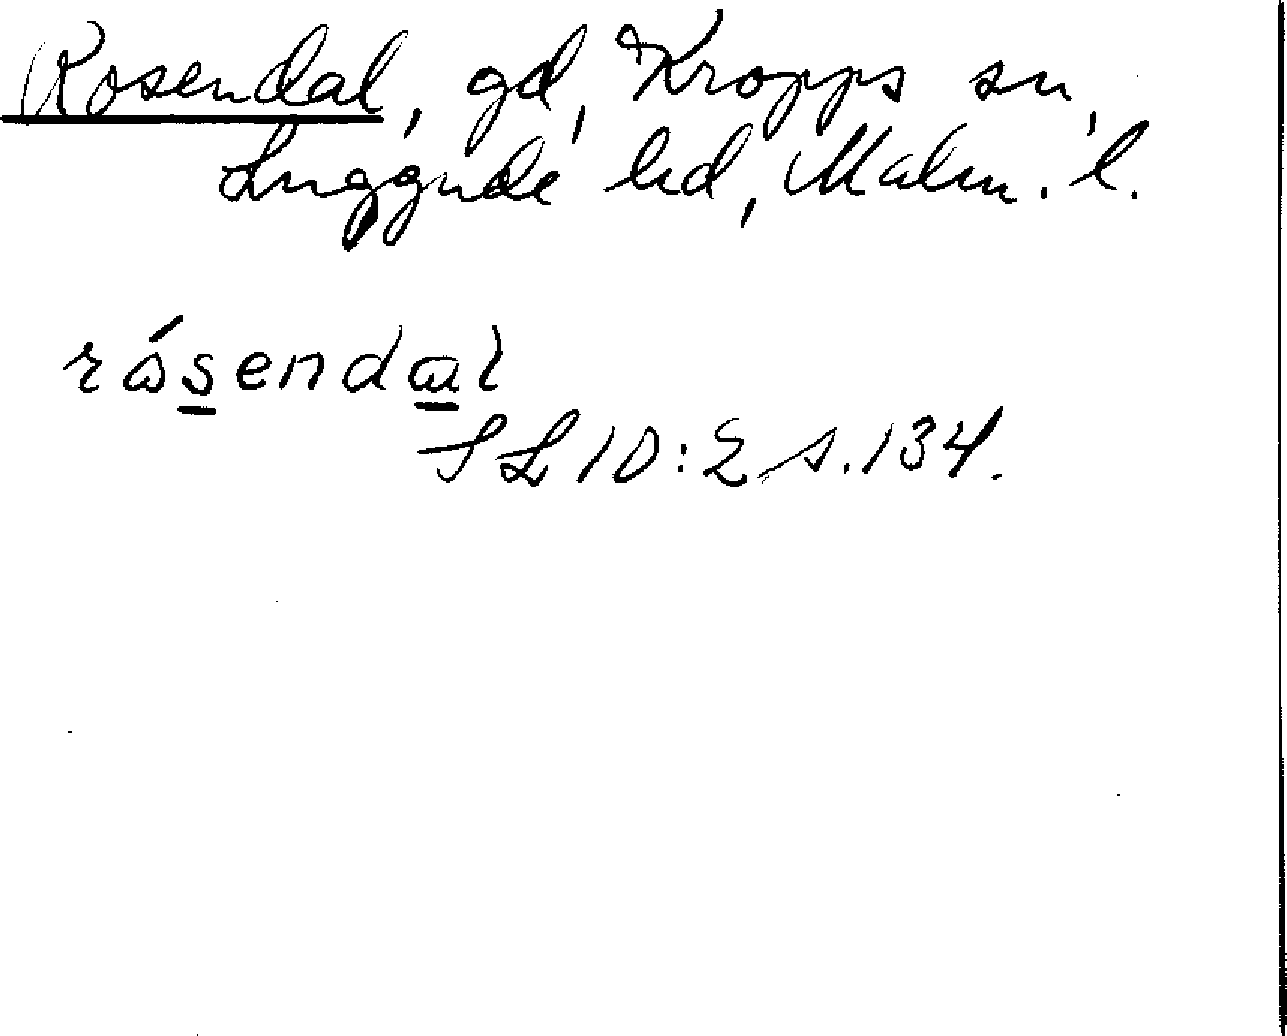 Rosendal, gd, Kropps sn,
Luggude hd, Malm. l.
rósendal
SL 10:2 s. 134.